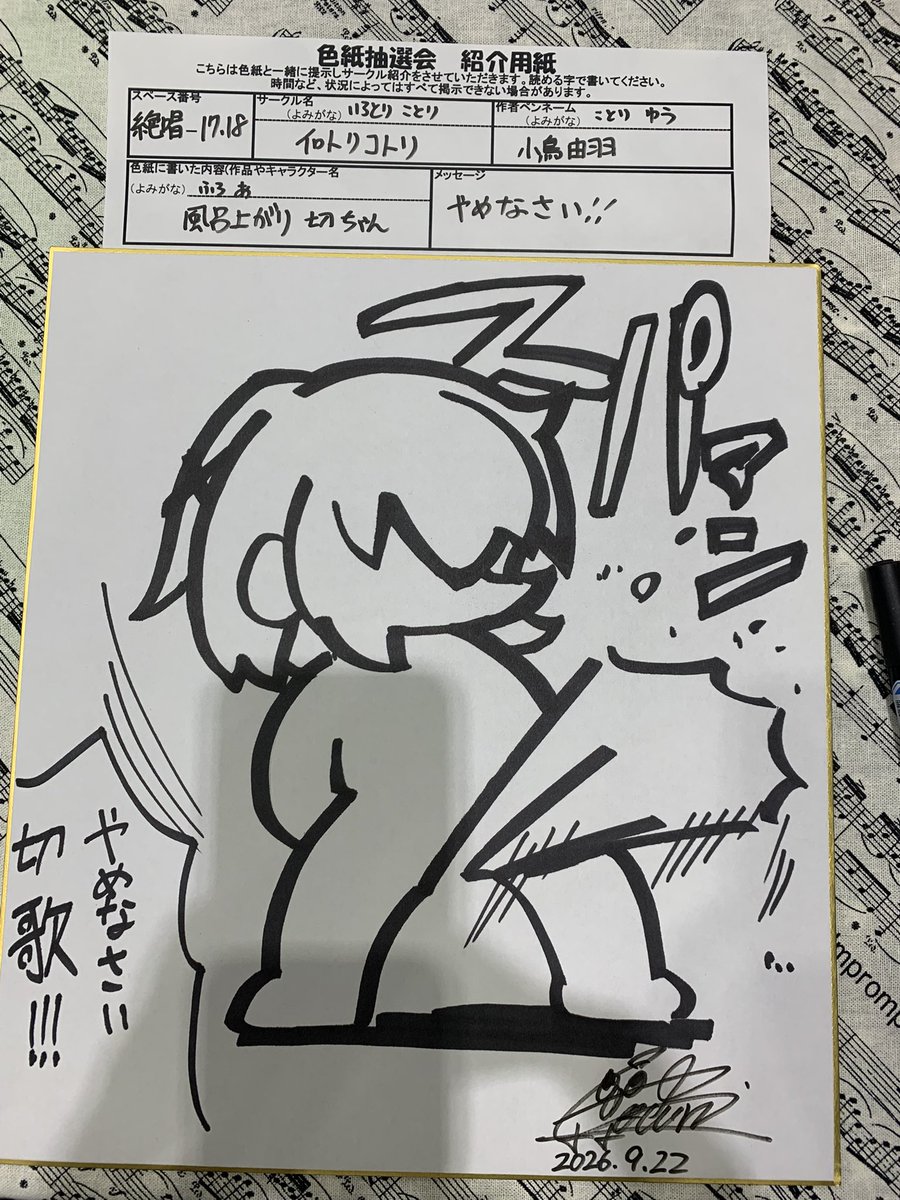 色紙抽選会 紹介用紙
こちらは色紙と一緒に提示しサークル紹介をさせていただきます。読める字で書いてください。
時間など、状況によってはすべて掲示できない場合があります。
スペース番号
絶唱-17.18
サークル名
(よみがな) いろとり ことり
イロトリコトリ
作者ペンネーム
(よみがな) ことり ゆう
小鳥由羽
色紙に書いた内容(作品やキャラクター名
(よみがな) ふろ あ
風呂上がり 切ちゃん
メッセージ
やめなさい!!
パァン
やめなさい
切歌!!!
2026.9.22
mpromp